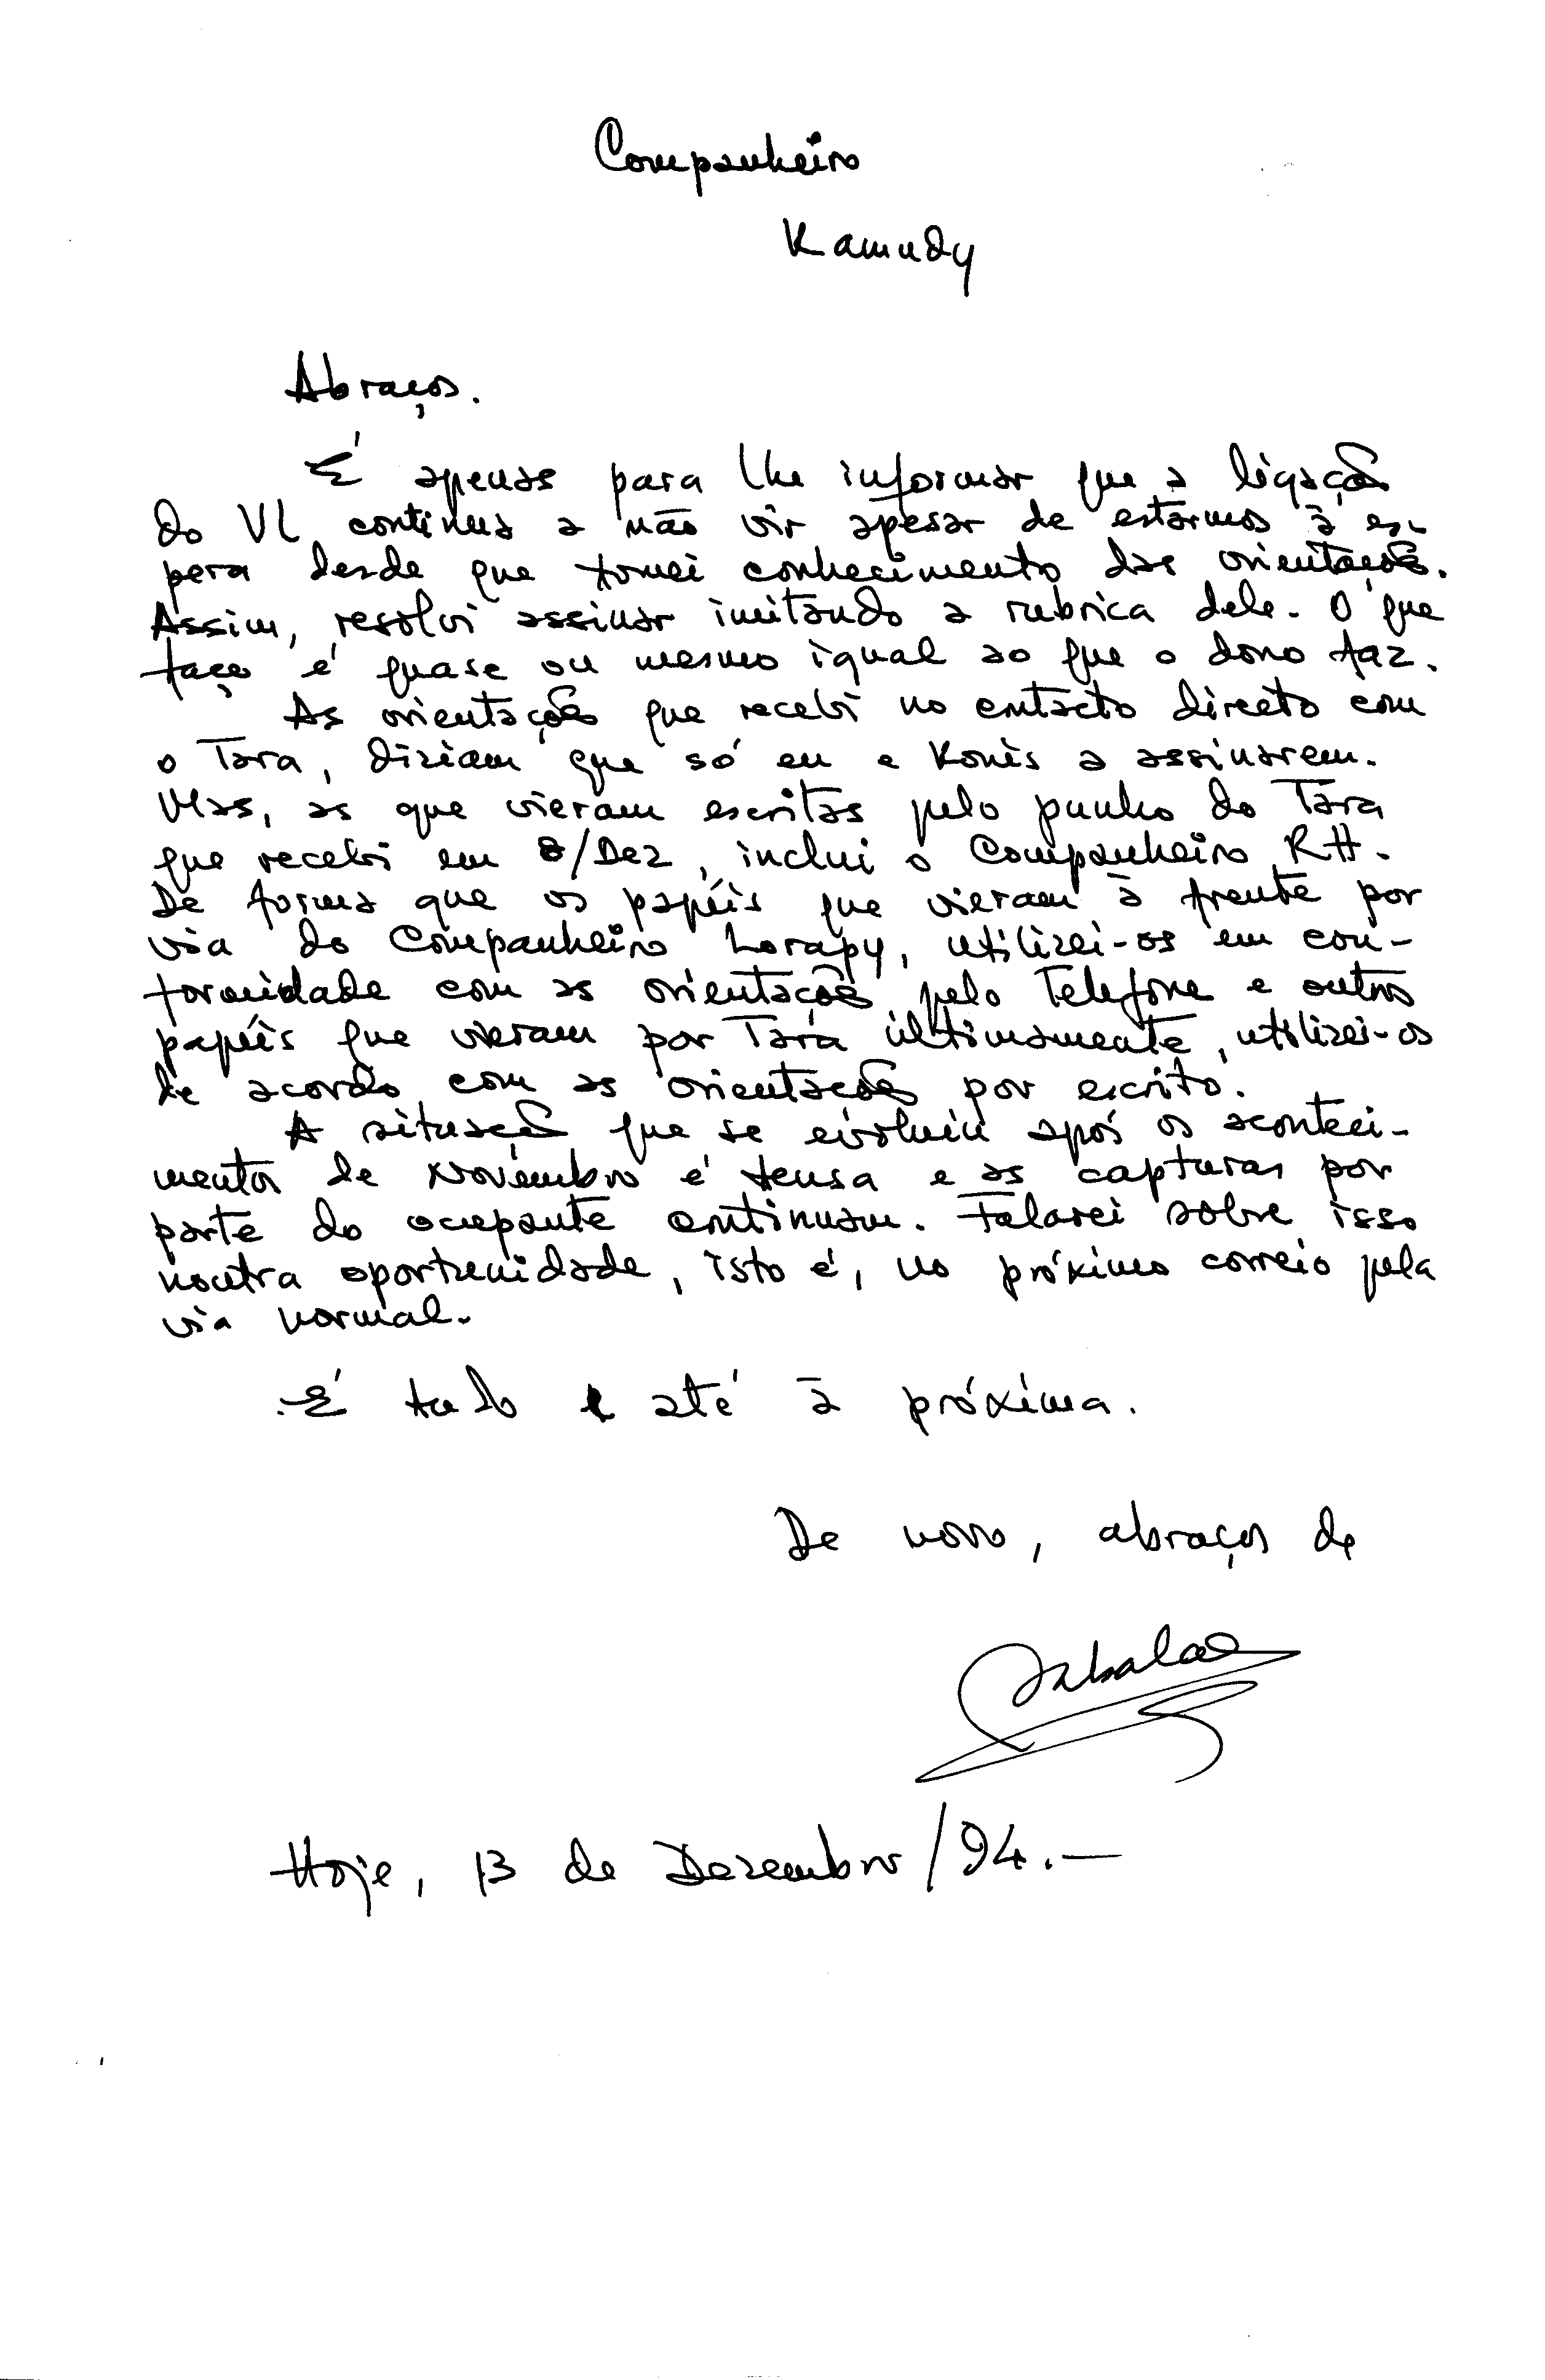 Companheiro
Kamudy
Abraços.
É apenas para lhe informar que a ligação
do VL continua a não vir apesar de estarmos à es-
pera desde que tomei conhecimento das orientações.
Assim, resolvi assinar imitando a rubrica dele. O que
faço é quase ou mesmo igual ao que o dono faz.
As orientações que recebi no contacto directo com
o Tara, diziam que só eu e Konis a assinarem.
Mas, as que vieram escritas pelo punho do Tara
que recebi em 8/Dez, inclui o Companheiro RH.
De forma que os papéis que vieram à frente por
via do Companheiro Lorapy, utilizei-os em con-
formidade com as orientações pelo Telefone e outros
papéis que vieram por Tara últimamente, utilizei-os
de acordo com as orientações por escrito.
A situação que se evoluiu após os aconteci-
mentos de Novembro é tensa e as capturas por
parte do ocupante continuam. Falarei sobre isso
noutra oportunidade, isto é, no próximo correio pela
via normal.
É tudo e até à próxima.
De novo, abraços de
Hoje, 13 de Dezembro/94.—